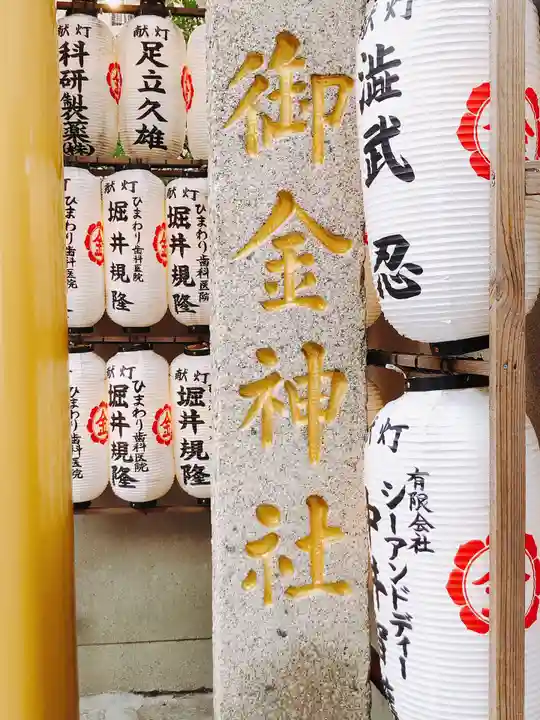 御金神社
献灯
渋武忍
献灯
有限会社
シーアンドディー
献灯
足立久雄
献灯
科研製薬㈱
献灯
ひまわり歯科医院
堀井規隆
献灯
ひまわり歯科医院
堀井規隆
ひまわり歯科医院
献灯
ひまわり歯科医院
堀井規隆
献灯
堀井規隆
金
金
金
金